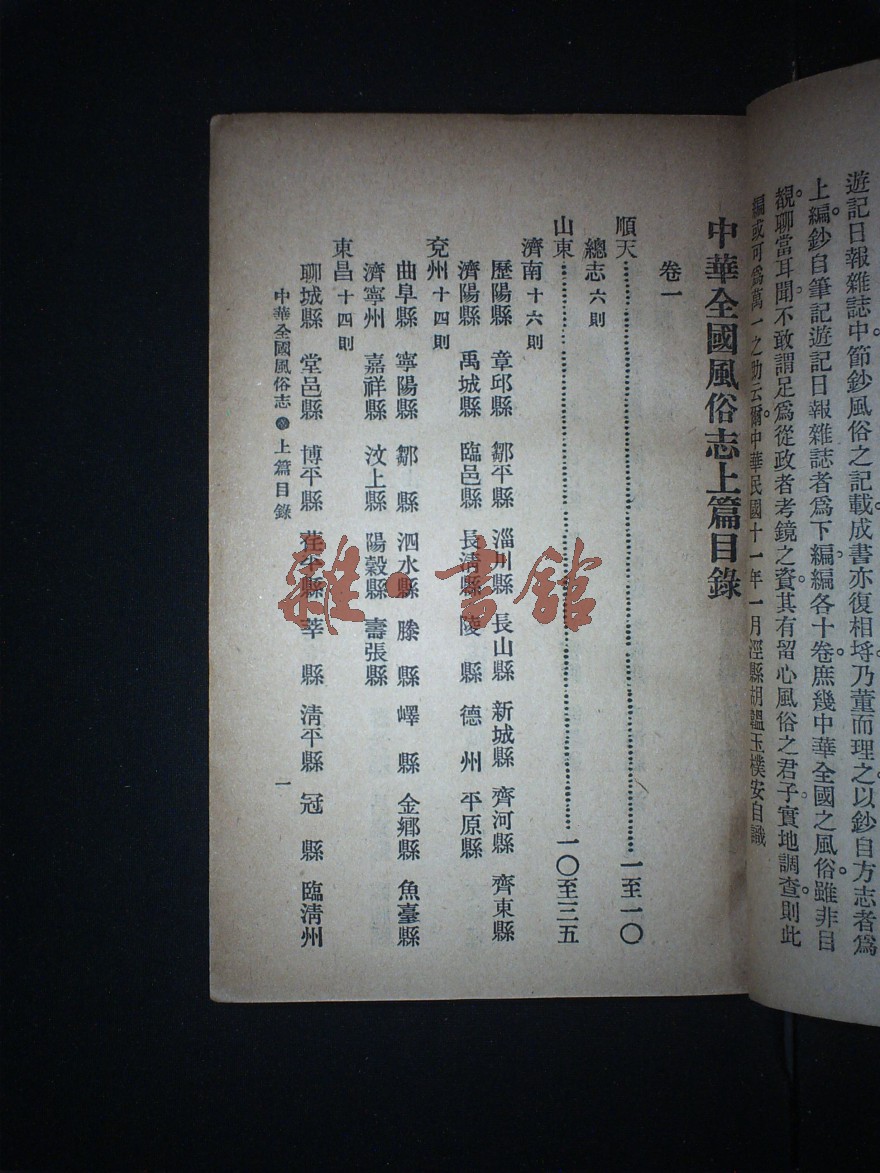 遊記日報雜誌中。節鈔風俗之記載。成書亦復相埒。乃董而理之。以鈔自方志者爲
上編。鈔自筆記遊記日報雜誌者爲下編。編各十卷。庶幾中華全國之風俗。雖非目
覩。聊當耳聞。不敢謂足爲從政者考鏡之資。其有留心風俗之君子。實地調查。則此
編或可爲萬一之助云爾。中華民國十一年一月涇縣胡韞玉樸安自識
中華全國風俗志上篇目錄
卷一
順天……一至一〇
總志六則
山東……一〇至三五
濟南十六則
歷陽縣 章邱縣 鄒平縣 淄川縣 長山縣 新城縣 齊河縣 齊東縣
濟陽縣 禹城縣 臨邑縣 長清縣 陵縣 德州 平原縣
兗州十四則
曲阜縣 寧陽縣 鄒縣 泗水縣 滕縣 嶧縣 金鄉縣 魚臺縣
濟寧州 嘉祥縣 汶上縣 陽穀縣 壽張縣
東昌十四則
聊城縣 堂邑縣 博平縣 茌平縣 莘縣 清平縣 冠縣 臨清州
中華全國風俗志 上篇目錄
一
雜書館